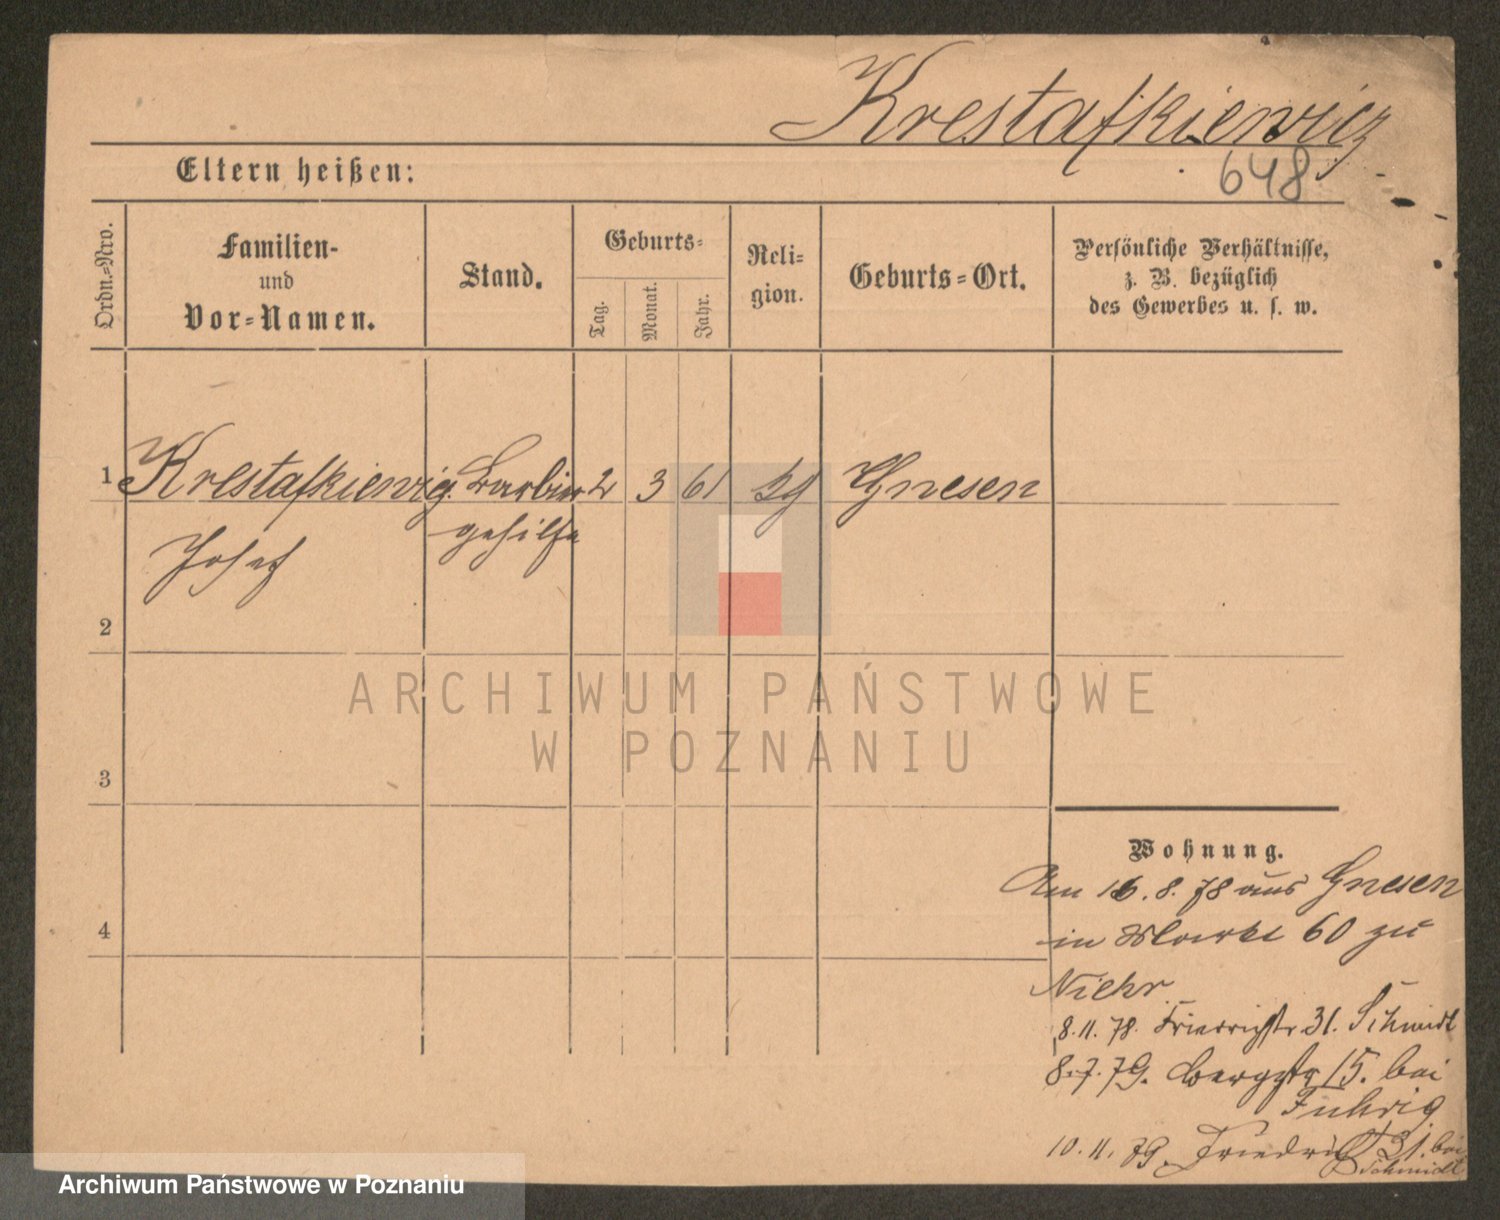 Krestafkiewicz
648
Eltern heißen:
Ordn.=Nro.
Familien-
und
Vor=Namen.
Stand.
Geburts=
Tag.
Monat.
Jahr.
Reli=
gion.
Geburts=Ort.
Persönliche Verhältnisse,
z. B. bezüglich
des Gewerbes u. s. w.
1 Krestafkiewicz Barbier 2 3 61 Gnesen
Josef gehilfe
2
3
4
ARCHIWUM PAŃSTWOWE
W POZNANIU
Wohnung.
Am 16. 8. 78 aus Gnesen
in Markt 60 zu
Niehr
8. 11. 78. Friedrichstr 31. Schmidt
8. 7. 79. Bergstr 15. bei
Fuhrig
10. 11. 79. Friedrich 31. bei
Schmidt
Archiwum Państwowe w Poznaniu